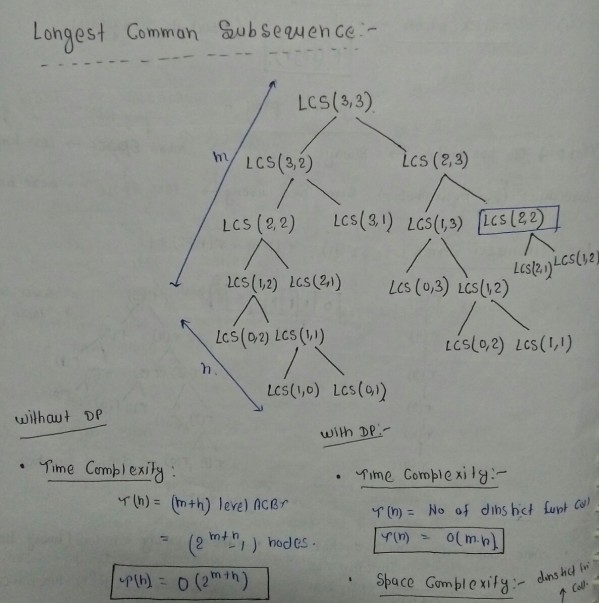 Longest Common Subsequence:-
LCS(3,3)
m
LCS(3,2) LCS(2,3)
LCS(2,2) LCS(3,1) LCS(1,3) LCS(2,2)
LCS(2,1) LCS(1,2)
LCS(1,2) LCS(2,1) LCS(0,3) LCS(1,2)
LCS(0,2) LCS(1,1) LCS(0,2) LCS(1,1)
n.
LCS(1,0) LCS(0,1)
without DP
• Time Complexity:
T(n) = (m+n) level ACBT
= (2^m+n -1) nodes.
T(n) = O(2^m+n)
with DP:-
• Time Complexity:-
T(n) = No of dinstict funt Call
T(n) = O(m.n)
• Space Complexity:- dinstict
Call.